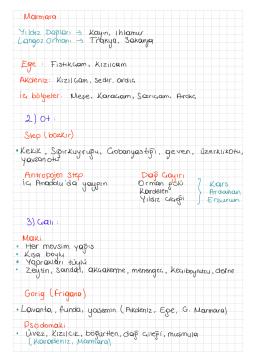 Marmara
Yıldız Dağları → Kayın, ıhlamur
Langoz Ormanı → Trakya, Sakarya
Ege : Fıstıkçam, Kızılçam
Akdeniz: Kızılçam, Sedir, ardıç
İç bölgeler: Meşe, Karaçam, Sarıçam, Ardıç
2) Ot :
Step (bozkır)
• Kekik, Sığırkuyruğu, Çobanyastığı, geven, üzerlikotu,
yavşanotu
Antropojen Step
İç Anadolu'da yaygın
Dağ Çayırı
Orman gülü
Kardelen
Yıldız çiçeği
Kars
Ardahan
Erzurum
3) Çalı :
Maki
• Her mevsim yağış
• Kısa boylu
• Yaprakları tüylü
• Zeytin, sandal, akçakesme, menengiç, keçiboynuzu, defne
Garig (Frigana)
• Lavanta, funda, yasemin (Akdeniz, Ege, G. Marmara)
Psödomaki
• Üvez, Kızılcık, böğürtlen, dağ çileği, muşmula
(Karadeniz, Marmara)